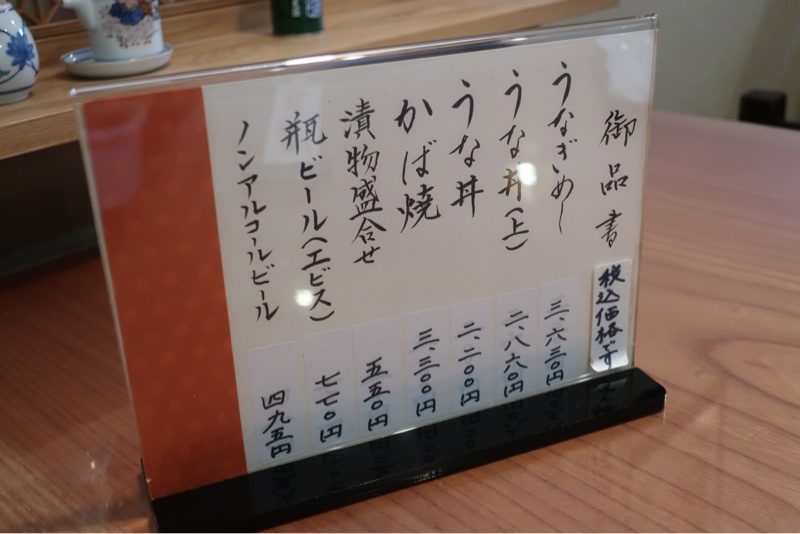 御品書 税込価格です
うなぎめし 三、六三〇円
うな丼(上) 二、八六〇円
うな丼 二、二〇〇円
かば焼 三、三〇〇円
漬物盛合せ 五五〇円
瓶ビール(エビス) 七七〇円
ノンアルコールビール 四九五円